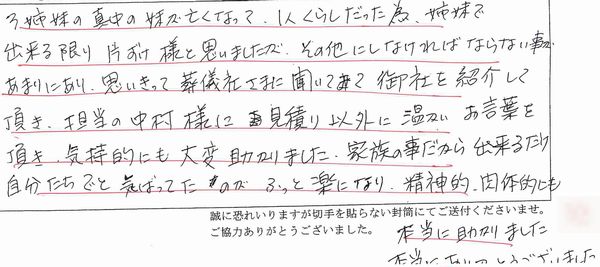 3姉妹の真中の妹が亡くなって、1人ぐらしだった為、姉妹で
出来る限り片ずけ様と思いましたが、その他にしなければならない事が
あまりにあり、思いきって葬儀社さまに聞いてみて御社を紹介して
頂き、担当の中村様に見積り以外に温かいお言葉を
頂き、気持的にも大変助かりました。家族の事だから出来るだけ
自分たちでと気ばってたものがふっと楽になり、精神的、肉体的にも
誠に恐れいりますが切手を貼らない封筒にてご送付くださいませ。
ご協力ありがとうございました。
本当に助かりました
本当にありがとうございました